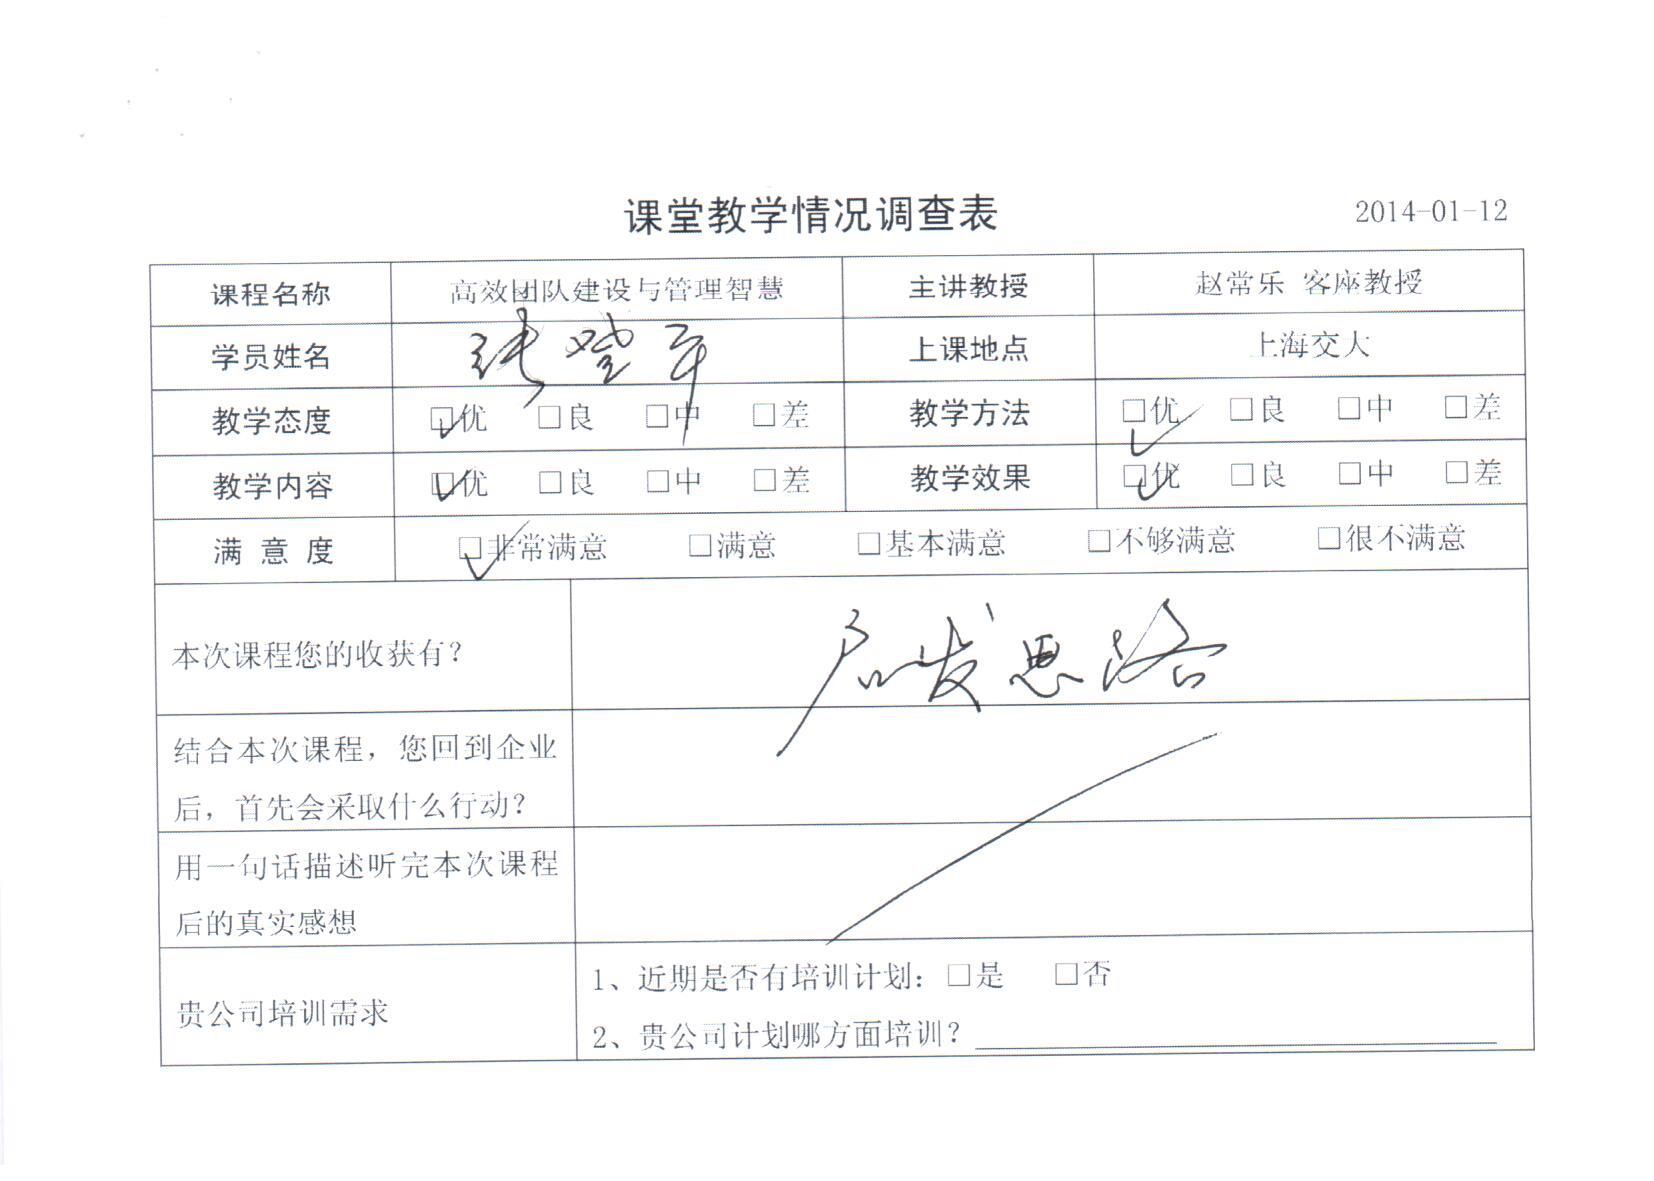 课堂教学情况调查表 2014-01-12
课程名称 高效团队建设与管理智慧 主讲教授 赵常乐 客座教授
学员姓名 张登平 上课地点 上海交大
教学态度 ☑优 □良 □中 □差 教学方法 ☑优 □良 □中 □差
教学内容 ☑优 □良 □中 □差 教学效果 ☑优 □良 □中 □差
满 意 度 ☑非常满意 □满意 □基本满意 □不够满意 □很不满意
本次课程您的收获有? 启发思路
结合本次课程，您回到企业
后，首先会采取什么行动?
用一句话描述听完本次课程
后的真实感想
贵公司培训需求
1、近期是否有培训计划: □是 □否
2、贵公司计划哪方面培训?